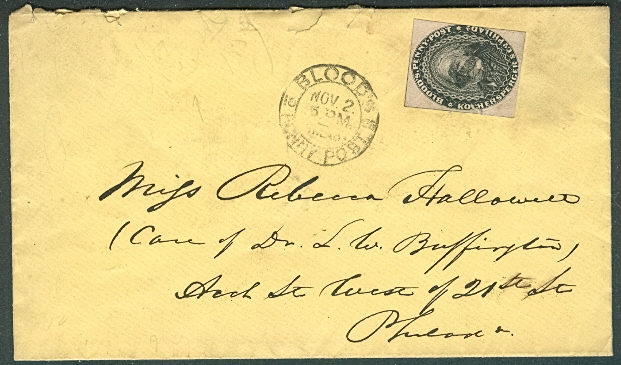 BLOOD'S PENNY-POST KOCHERSPERGER & CO. PHILADA
BLOOD'S PENNY POST
NOV. 2
Miss Rebecca Hallowell
(Care of Dr. L. W. Buffington)
Arch St West of 21st St
Philada.